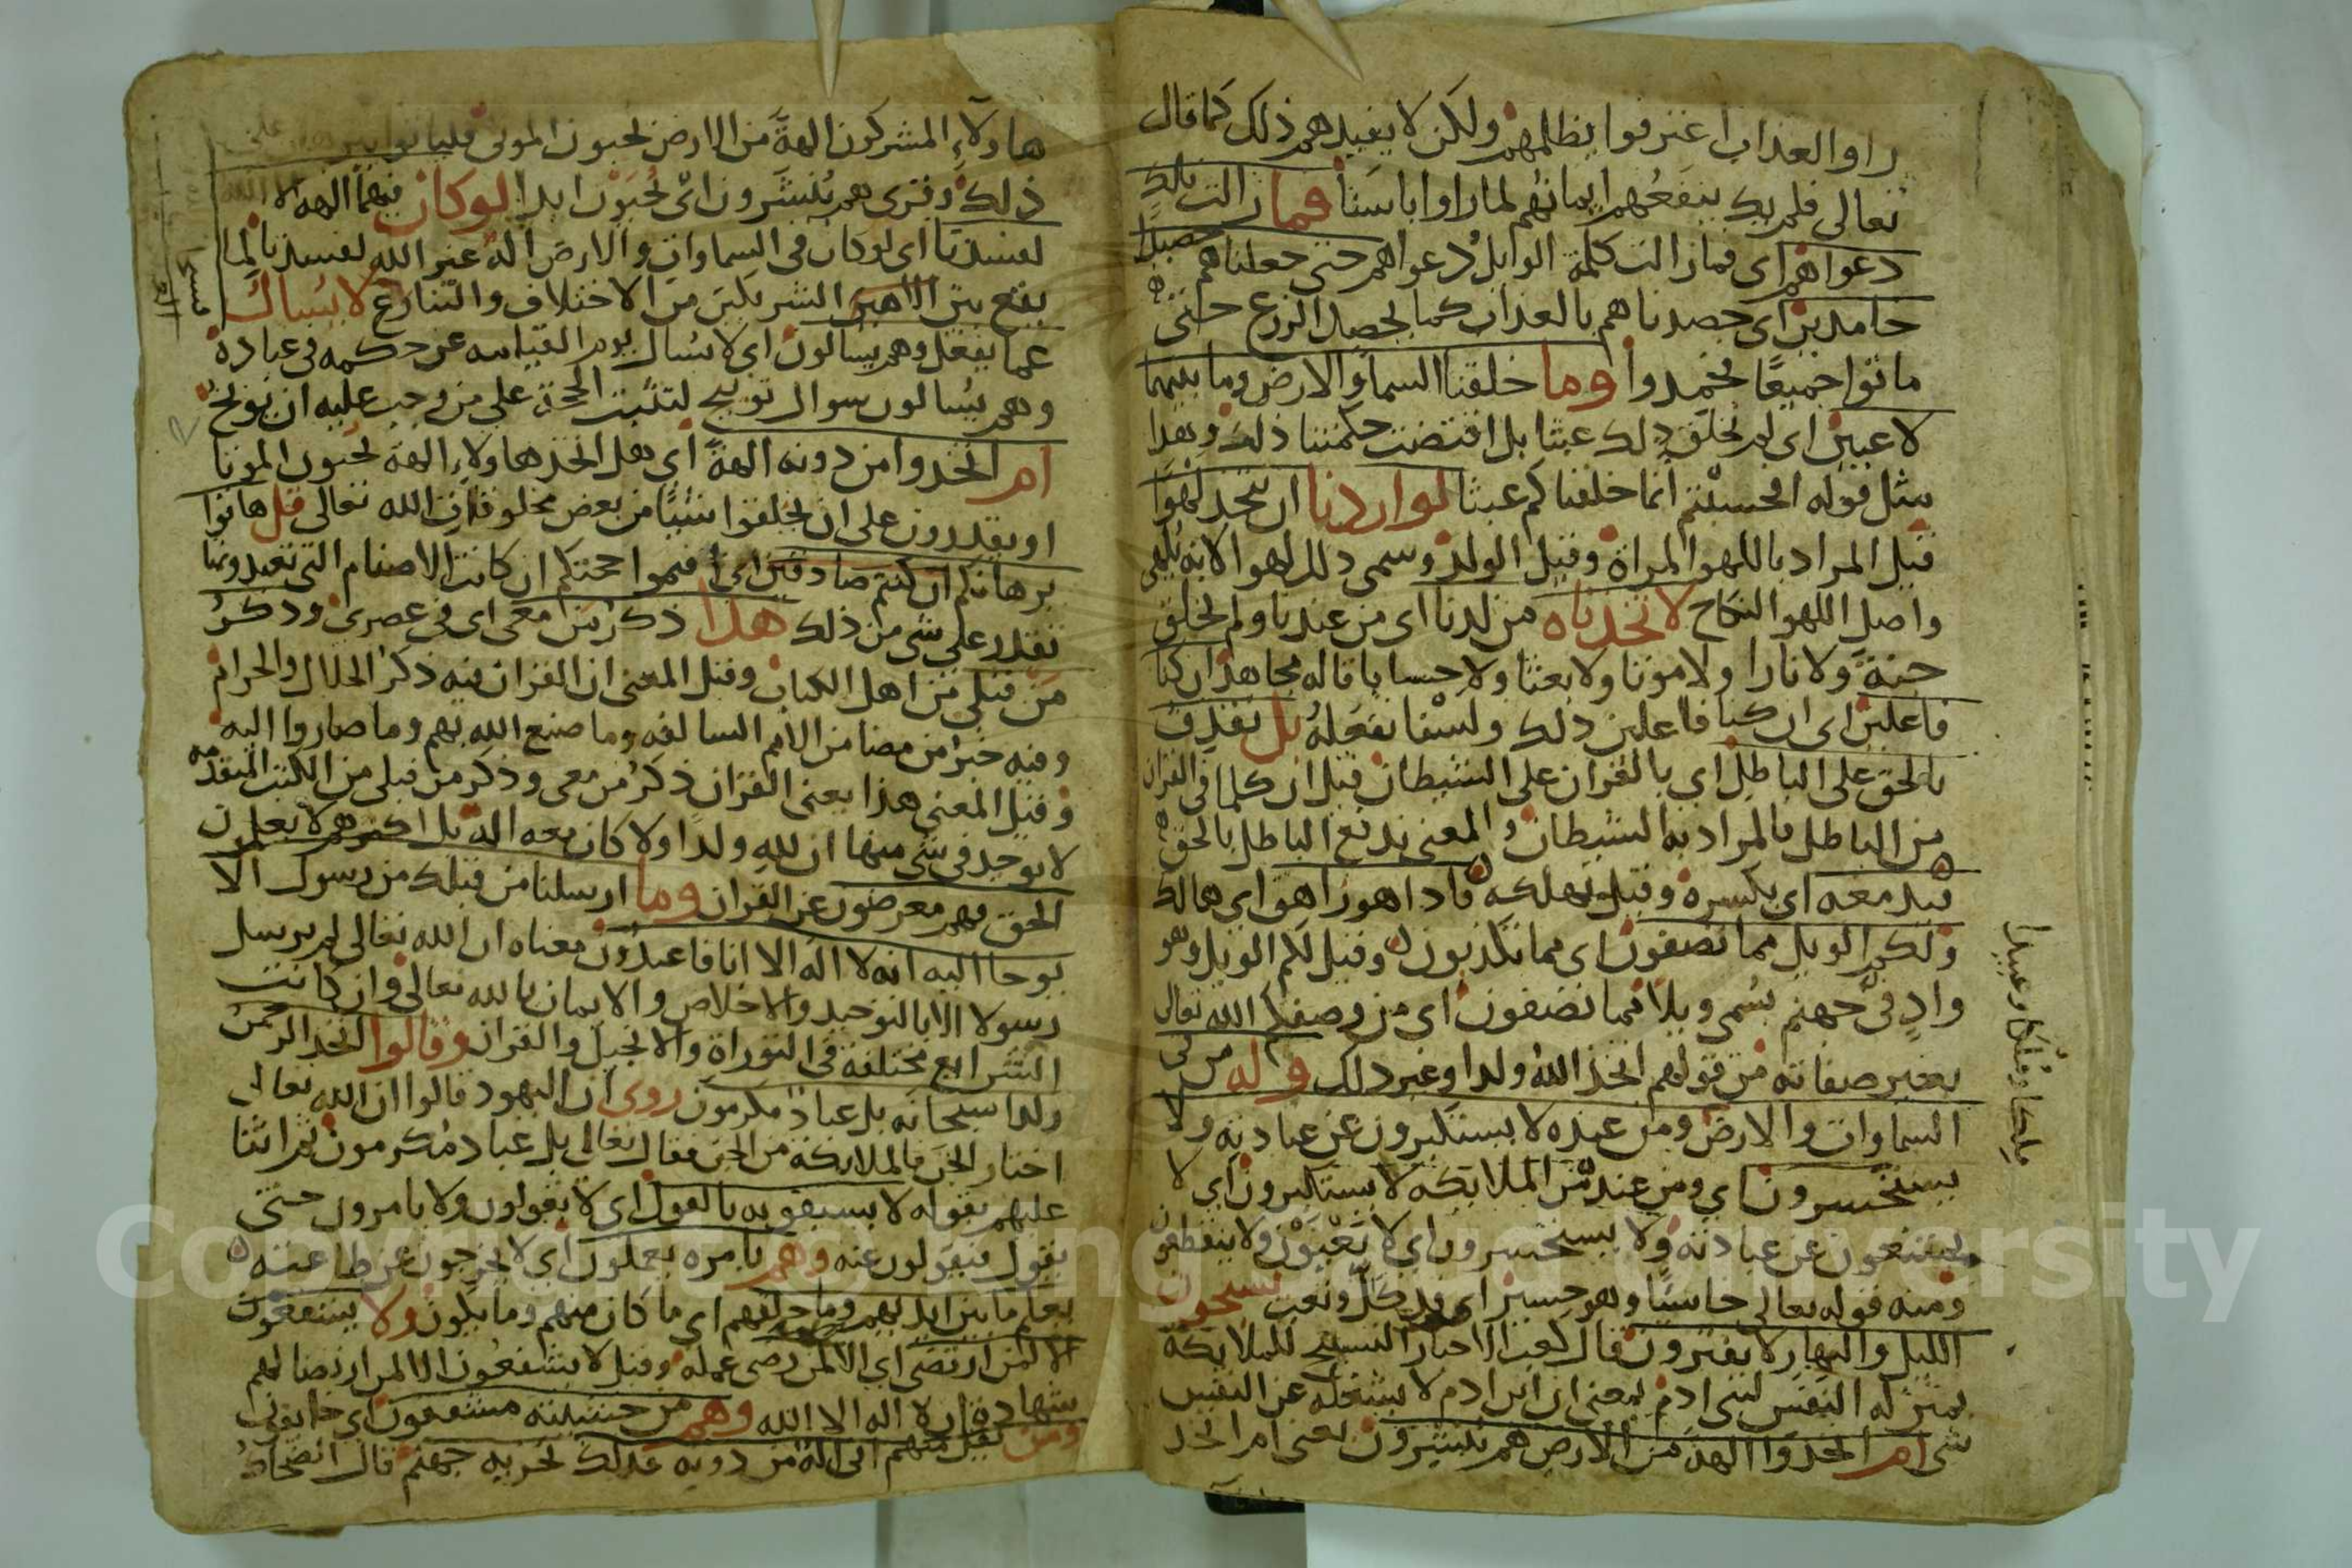 راوا العذاب اعترفوا بظلمهم ولكن لا يفيدهم ذلك كما قال
تعالى فلم يك ينفعهم ايمانهم لما راوا باسنا فما زالت تلك
دعواهم اى فما زالت كلمة الوايل دعواهم حتى جعلناهم حصيدا
خامدين اى حصدناهم بالعذاب كما يحصد الزرع حتى
ماتوا جميعا فخمدوا وما خلقنا السما والارض وما بينهما
لاعبين اى لم نخلق ذلك عبثا بل اقتضت حكمتنا ذلك وهذا
مثل قوله افحسبتم انما خلقناكم عبثا لو اردنا ان نتخد لهوا
قيل المراد باللهو المراة وقيل الولد وسمى ذلك لهوا لانه يلهى
واصل اللهو النكاح لاتخدناه من لدنا اى من عندنا ولم نخلق
جنة ولا نارا ولا موتا ولا بعثا ولا حسابا قاله مجاهد ان كنا
فاعلين اى ان كنا فاعلين ذلك ولسنا نفعله بل نقذف
بالحق على الباطل اى بالقران على الشيطان قيل ان كلما فى القران
من الباطل فالمراد به الشيطان والمعنى يدفع الباطل بالحق
فيدمغه اى يكسره وقيل يهلكه فاذا هو زاهق اى هالك
ولكم الويل مما تصفون اى مما تكذبون وقيل لكم الويل وهو
واد فى جهنم يسمى ويلا مما تصفون اى من وصفكم الله تعالى
بغير صفاته من قولهم اتخذ الله ولدا وغير ذلك وله من فى
السماوات والارض ومن عنده لا يستكبرون عن عبادته ولا
يستحسرون اى ومن عنده من الملايكة لا يستكبرون اى لا
يمتنعون عن عبادته ولا يستحسرون اى لا تعيون ولا ينقطعون
ومنه قوله تعالى خاسئا وهو حسير اى كل وتعب يسبحون
الليل والنهار لا يفترون قال كعب الاحبار التسبيح للملايكة
بمنزلة النفس لبنى ادم بمعنى ان ابن ادم لا يشغله عن النفس
شى ام اتخذوا الهة من الارض هم ينشرون يعنى ام اتخذ
ملكا وملكا وعبيدا
هاولاء المشركون الهة من الارض يحيون الموتى فلياتوا
ذلك وقرى هم ينشرون اى يحيون ابدا لو كان فيهما الهة الا الله
لفسدتا اى لو كان فى السماوات والارض اله غير الله لفسدتا لما
يقع بين الشريكين من الاختلاف والتنازع لا يسال
عما يفعل وهم يسالون اى لا يسال يوم القيامه عن حكمه فى عباده
وهم يسالون سوال توبيخ لتثبت الحجة على من وجب عليه ان يوبخ
ام اتخدوا من دونه الهة اى هل اتخذ هاولاء الهة يحيون الموتا
او يقدرون على ان يخلقوا شيئا من بعض مخلوقات الله تعالى قل هاتوا
برهانكم ان كنتم صادقين اى اقيموا حجتكم ان كانت الاصنام التى تعبدونها
تقدر على شى من ذلك هذا ذكر من معى اى فى عصرى وذكر
من قبلى من اهل الكتاب وقيل المعنى ان القران فيه ذكر الحلال والحرام
وفيه خبر من مضا من الامم السالفه وما صنع الله بهم وما صاروا اليه
وقيل المعنى هذا يعنى القران ذكر من معى وذكر من قبلى من الكتب المتقدمه
لا يوجد فى شى منها ان لله ولدا ولا كان معه اله بل اكثرهم لا يعلمون
الحق فهم معرضون عن القران وما ارسلنا من قبلك من رسول الا
يوحا اليه انه لا اله الا انا فاعبدون معناه ان الله تعالى لم يرسل
رسولا الا بالتوحيد والاخلاص والايمان بالله تعالى وان كانت
الشرايع مختلفة فى التوراة والانجيل والقران وقالوا اتخذ الرحمن
ولدا سبحانه بل عباد مكرمون روى ان اليهود قالوا ان الله تعالى
اختار الجن فالملايكة من الجن فقال تعالى بل عباد مكرمون ثم اثنا
عليهم بقوله لا يسبقونه بالقول اى لا يقولون ولا يامرون حتى
يقول فيقولون عنه وهم بامره يعملون اى لا يخرجون عن طاعته
يعلم ما بين ايديهم وما خلفهم اى ما كان منهم وما يكون ولا يشفعون
الا لمن ارتضى اى الا لمن رضى عمله وقيل لا يشفعون الا لمن ارتضا لهم
شهادة ان لا اله الا الله وهم من خشيته مشفقون اى خايفون
ومن يقل منهم انى اله من دونه فذلك نجزيه جهنم قال الضحاك
Copyright © King Saud University